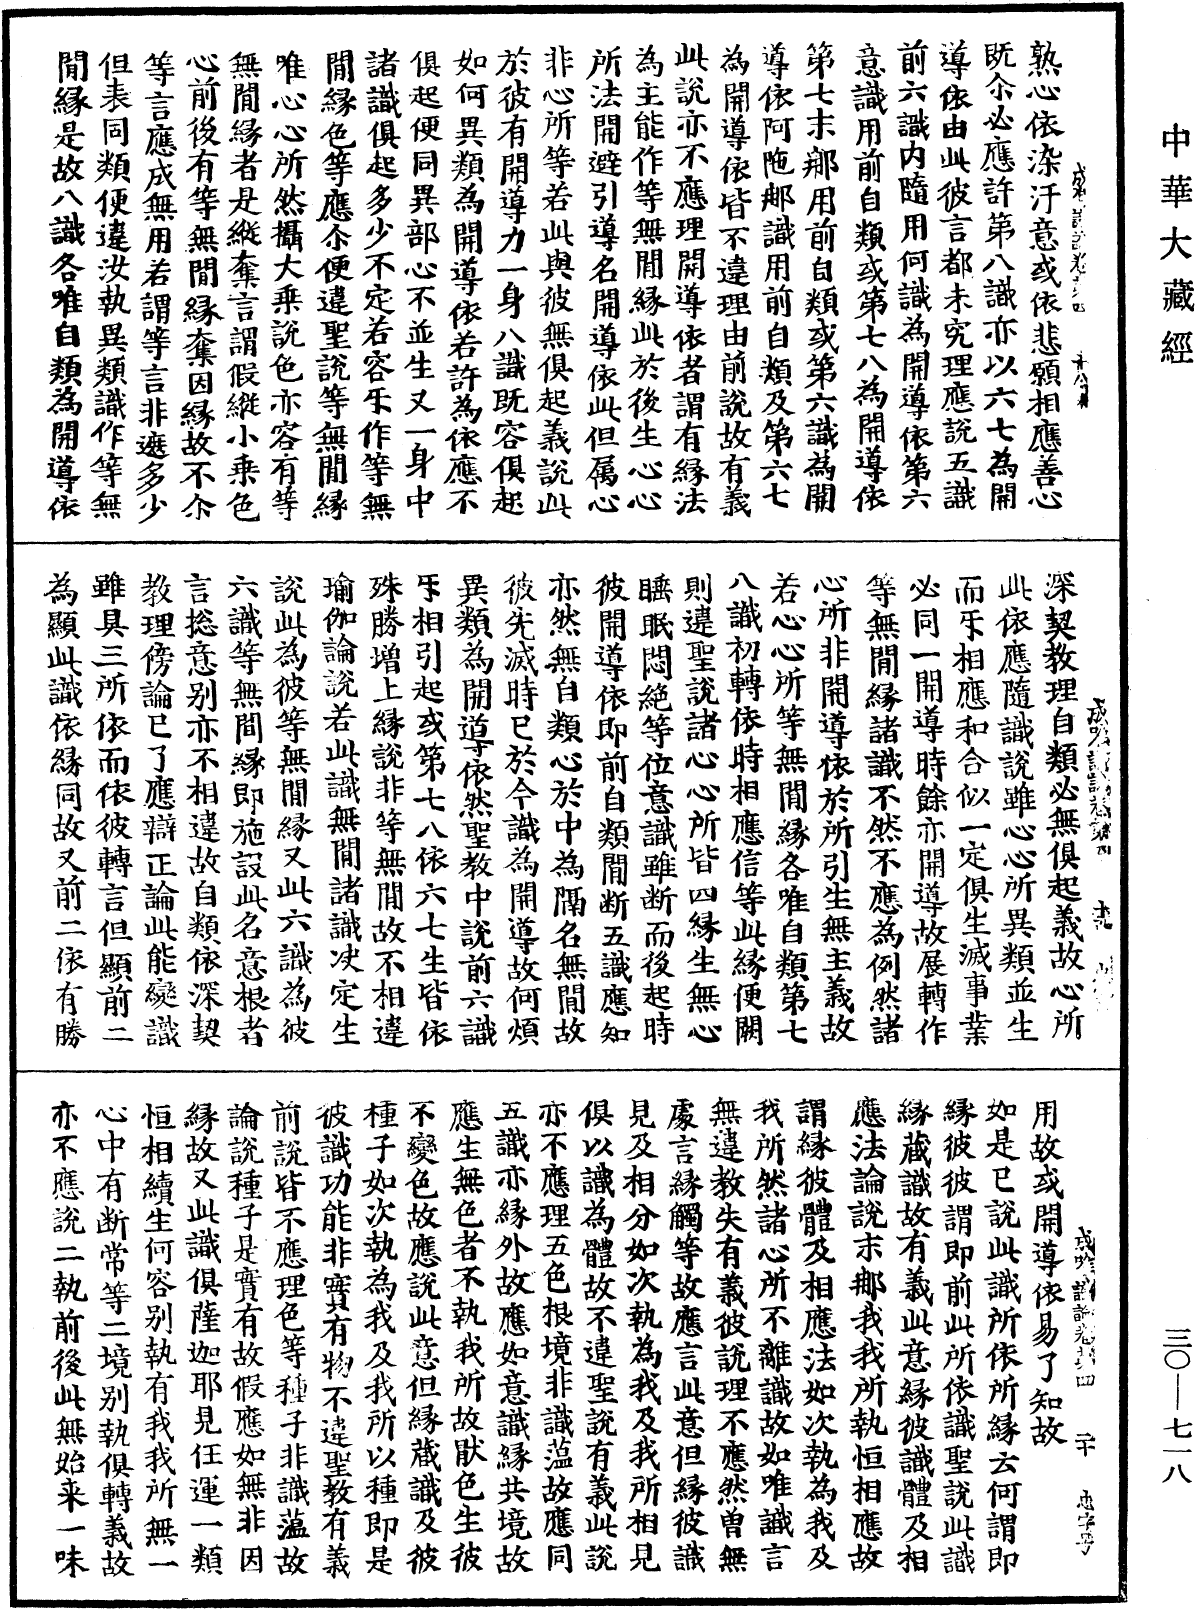 中華大藏經
熟心依染汙意或依悲願相應善心
既尒必應許第八識亦以六七為開
導依由此彼言都未究理應說五識
前六識內隨用何識為開導依第六
意識用前自類或第七八為開導依
第七末那用前自類或第六識為開
導依阿陁那識用前自類及第六七
為開導依皆不違理由前說故有義
此說亦不應理開導依者謂有緣法
為主能作等無間緣此於後生心心
所法開避引導名開導依此但屬心
非心所等若此與彼無俱起義說此
於彼有開導力一身八識既容俱起
如何異類為開導依若許為依應不
俱起便同異部心不並生又一身中
諸識俱起多少不定若容㸦作等無
間緣色等應尒便違聖說等無間緣
唯心心所然攝大乘說色亦容有等
無間緣者是縱奪言謂假縱小乘色
心前後有等無間緣奪因緣故不尒
等言應成無用若謂等言非遮多少
但表同類便違汝執異類識作等無
間緣是故八識各唯自類為開導依
深契教理自類必無俱起義故心所
此依應隨識說雖心心所異類並生
而㸦相應和合似一定俱生滅事業
必同一開導時餘亦開導故展轉作
等無間緣諸識不然不應為例然諸
心所非開導依於所引生無主義故
若心心所等無間緣各唯自類第七
八識初轉依時相應信等此緣便闕
則違聖說諸心心所皆四緣生無心
睡眠悶絕等位意識雖断而後起時
彼開導依即前自類間断五識應知
亦然無自類心於中為隔名無間故
彼先滅時已於今識為開導故何煩
異類為開導依然聖教中說前六識
㸦相引起或第七八依六七生皆依
殊勝增上緣說非等無間故不相違
瑜伽論說若此識無間諸識決定生
說此為彼等無間緣又此六識為彼
六識等無間緣即施設此名意根者
言捴意别亦不相違故自類依深契
教理傍論已了應辯正論此能變識
雖具三所依而依彼轉言但顯前二
為顯此識依緣同故又前二依有勝
用故或開導依易了知故
如是已說此識所依所緣云何謂即
緣彼彼謂即前此所依識聖說此識
緣藏識故有義此意緣彼識體及相
應法論說末那我我所執恒相應故
謂緣彼體及相應法如次執為我及
我所然諸心所不離識故如唯識言
無違教失有義彼說理不應然曾無
處言緣觸等故應言此意但緣彼識
見及相分如次執為我及我所相見
俱以識為體故不違聖說有義此說
亦不應理五色根境非識蘊故應同
五識亦緣外故應如意識緣共境故
應生無色者不執我所故猒色生彼
不變色故應說此意但緣藏識及彼
種子如次執為我及我所以種即是
彼識功能非實有物不違聖教有義
前說皆不應理色等種子非識蘊故
論說種子是實有故假應如無非因
緣故又此識俱薩迦耶見任運一類
恒相續生何容别執有我我所無一
心中有断常等二境别執俱轉義故
亦不應說二執前後此無始来一味
三〇—七一八